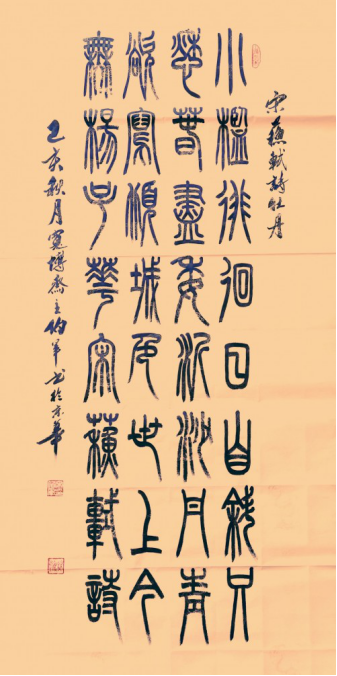 宋蘇軾詩牡丹
小檻徘徊日自斜只
愁春盡委泥沙丹青
欲寫傾城色世上今
無楊子華宋蘇軾詩
乙亥秋月寬齋主伯羊书於京華